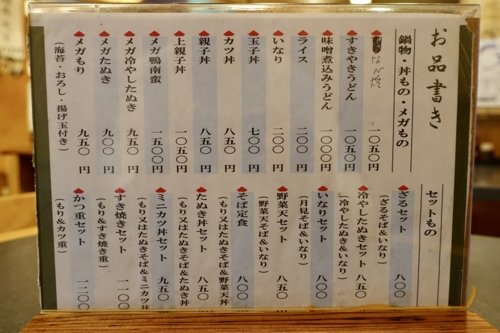 お品書き
鍋物・丼もの・メガもの
一〇五〇円
すきやきうどん 一〇五〇円
味噌煮込みうどん 一〇〇〇円
ライス 二〇〇円
いなり 二〇〇円
玉子丼 七〇〇円
カツ丼 八五〇円
親子丼 八五〇円
上親子丼 一〇五〇円
メガ鴨南蛮 一五〇〇円
メガ冷やしたぬき 九五〇円
メガたぬき 九〇〇円
メガもり 九五〇円
(海苔・おろし・揚げ玉付き)
セットもの
ざるセット 八〇〇
(ざるそば&いなり)
冷やしたぬきセット 八五〇
(冷やしたぬき&いなり)
いなりセット 八〇〇
(月見そば&いなり)
野菜天セット 八五〇
(野菜天そば&いなり)
そば定食 八五〇
(もり又はたぬきそば&野菜天丼
たぬき丼セット 八五〇
(もり又はたぬきそば&たぬき丼
ミニカツ丼セット 九五〇
(もり又はたぬきそば&ミニカツ丼
すき焼きセット 一一〇〇
(もり&すき焼き重)
かつ重セット 一一〇〇
(もり&カツ重)